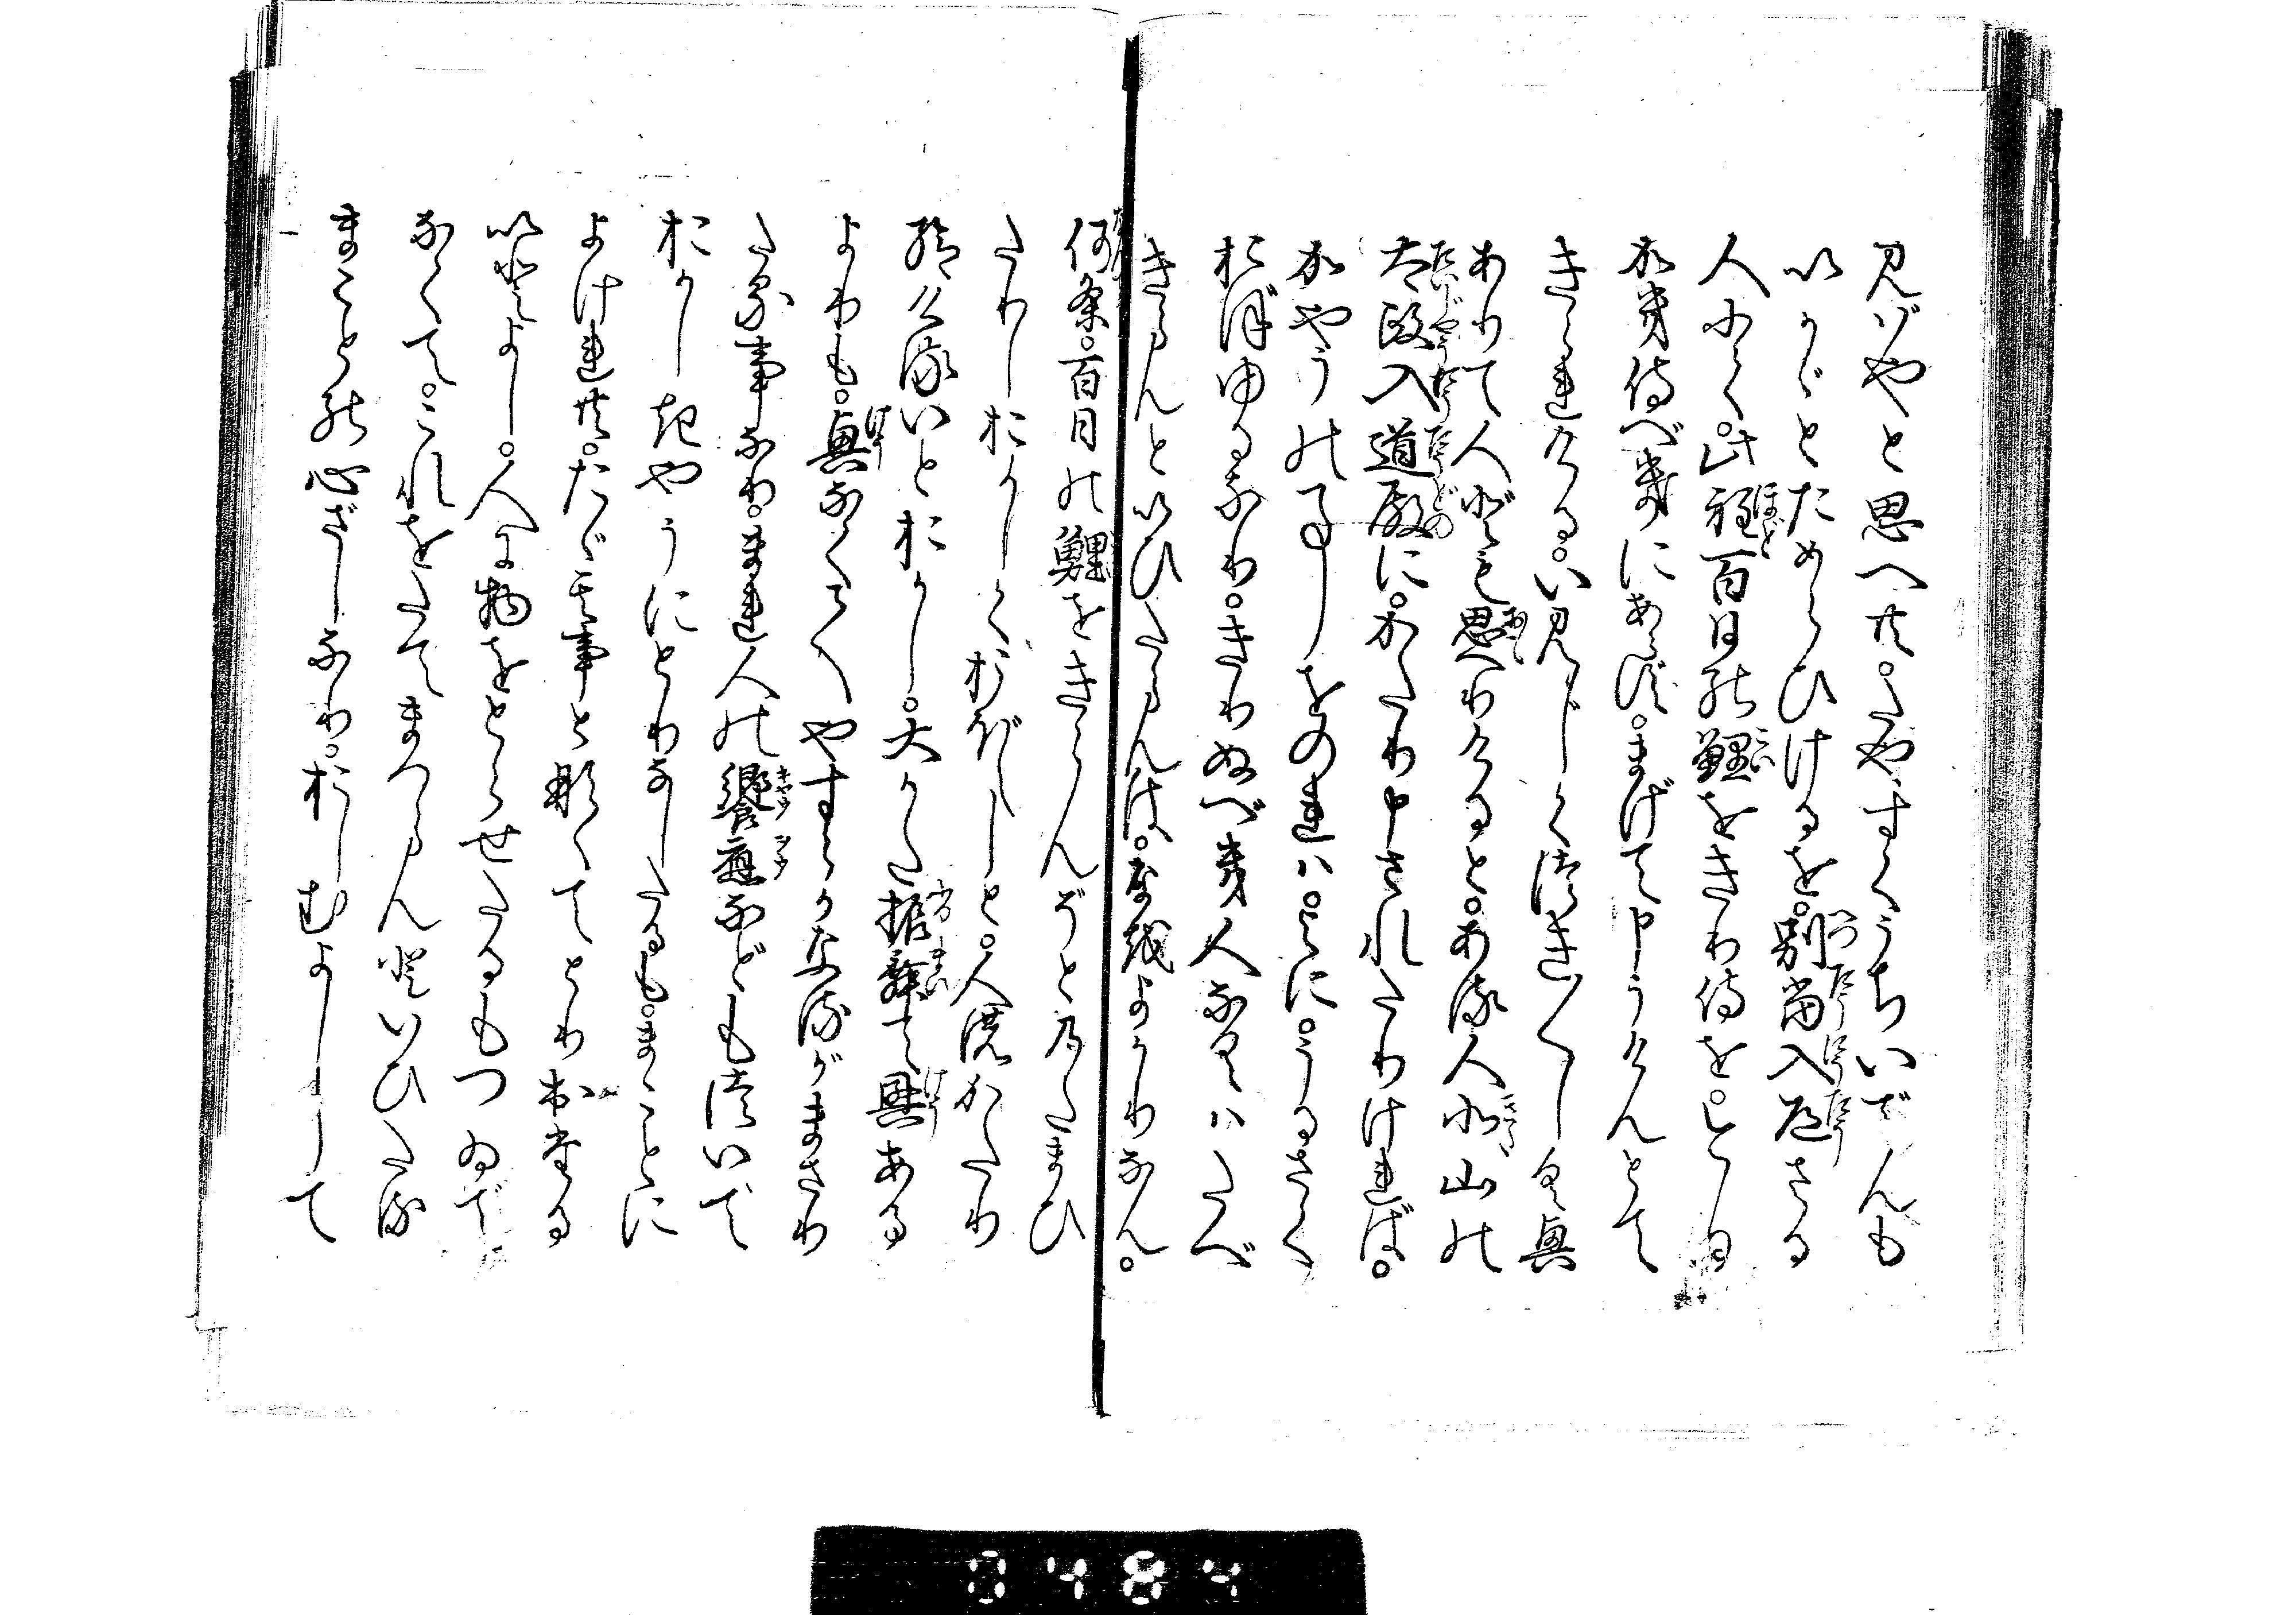 見ばやと思へ共。たやすくうちいでんも
いかゞとためらひけるを。別当入道さる
人にて。此程百日の鯉をきり侍を。けふ
かき侍べきにあらず。まげて申うけんとて
きられける。いみじくつき〴〵しく興
ありて人ども思へりけると。ある人北山の
太政入道殿に。かたり申されたりければ。
かやうの事をのれハ。よに。うるさく
おぼゆるなり。きりぬべき人なくハたべ
きらんといひたらんは。なをよかりなん。
何条。百日の鯉をきらんぞとのたまひ
たりしおかしくおぼえしと。人のかたり
給けるいとおかし。大かた振舞て興ある
よりも。興なくてやすらかなるがまさり
たる事なり。まれ人の饗應などもついで
おかしきやうにとりなしたるも。まことに
よけれ共。たゞ其事となくてとり出たる
いとよし。人に物をとらせたるもつゐで
なくて。これをたてまつらんといひたる
まことの心ざしなり。おしむよしして
0484